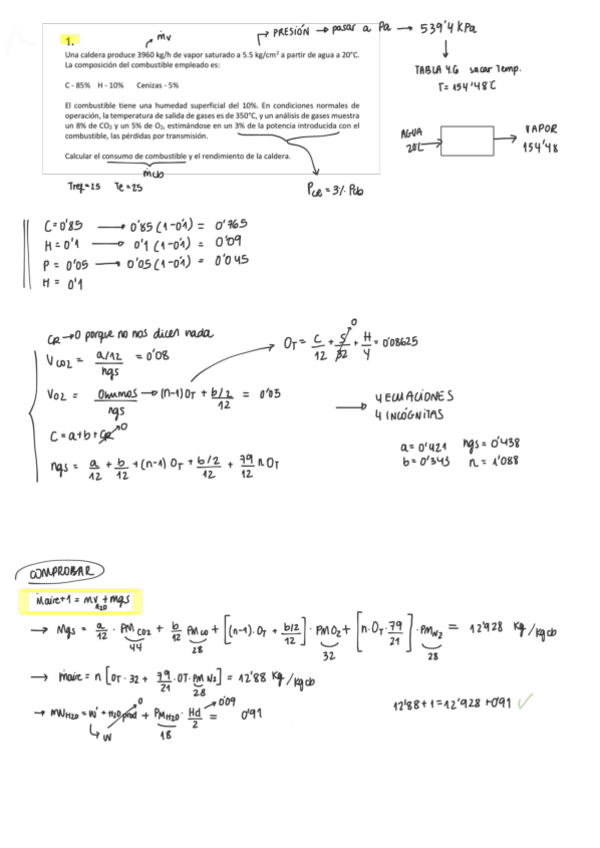 ṁv
PRESIÓN → pasar a Pa → 539'4 kPa
1.
Una caldera produce 3960 kg/h de vapor saturado a 5.5 kg/cm² a partir de agua a 20°C.
La composición del combustible empleado es:
TABLA 4.6 sacar Temp.
T = 154'48 C
C - 85% H - 10% Cenizas - 5%
El combustible tiene una humedad superficial del 10%. En condiciones normales de
operación, la temperatura de salida de gases es de 350°C, y un análisis de gases muestra
un 8% de CO₂ y un 5% de O₂, estimándose en un 3% de la potencia introducida con el
combustible, las pérdidas por transmisión.
AGUA
20C
VAPOR
154'48
Calcular el consumo de combustible y el rendimiento de la caldera.
ṁcb
Tref=25 Te=25
PCR = 3% Pcb
C=0'85 → 0'85 (1-0'1) = 0'765
H=0'1 → 0'1 (1-0'1) = 0'09
P = 0'05 → 0'05 (1-0'1) = 0'045
H = 0'1
CR → 0 porque no nos dicen nada
OT = C/12 + S/32 + H/4 = 0'08625
0
VCO2 = (a/12)/ngs = 0'08
VO2 = Ohumos/ngs → (n-1) OT + (b/2)/12 = 0'05
4 ECUACIONES
4 INCÓGNITAS
C = a+b+CR 0
a = 0'421 ngs = 0'438
b = 0'345 n = 1'088
ngs = a/12 + b/12 + (n-1) OT + (b/2)/12 + 79/12 n OT
COMPROBAR
ṁaire+1 = mvH2O + mgs
→ Mgs = a/12 · PMCO2 + b/12 PMCO + [(n-1).OT + (b/2)/12] · PMO2 + [n·OT·79/21] · PMN2 = 12'928 kg/kgcb
44 28 32 28
→ ṁaire = n [OT · 32 + 79/21 · OT · PM N2] = 12'88 kg/kgcb
28
→ mvH2O = W' + H2Oprod 0 + PMH2O · Hd/2 = 0'91
0'09
W 18
12'88 + 1 = 12'928 + 0'91 ✓